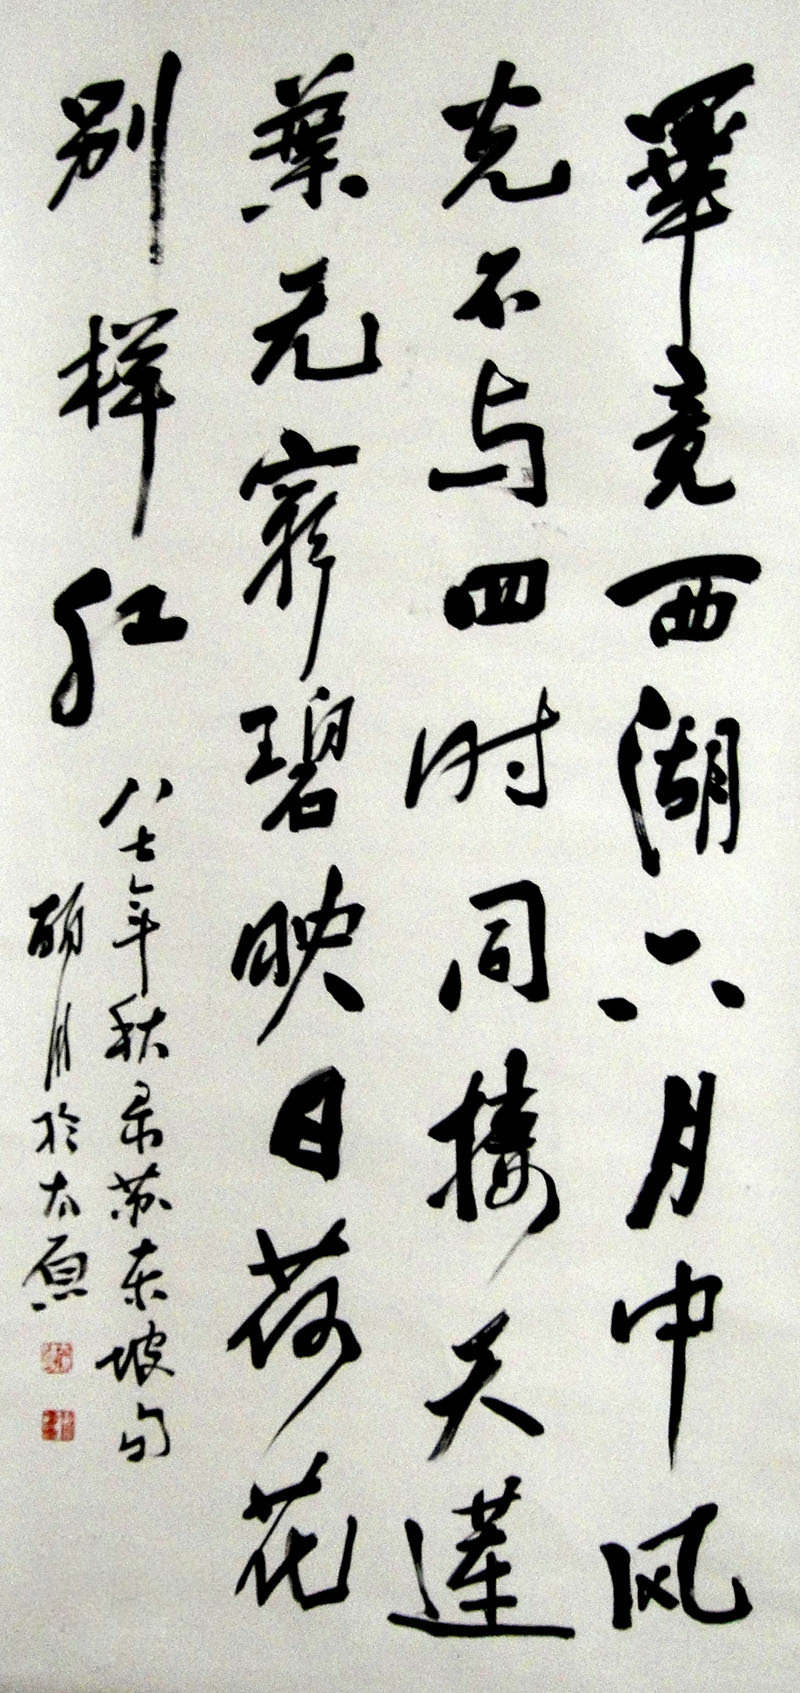 畢竟西湖六月中风
光不与四时同接天蓮
葉无窮碧映日荷花
别样红
八七年秋录苏东坡句
月於太原